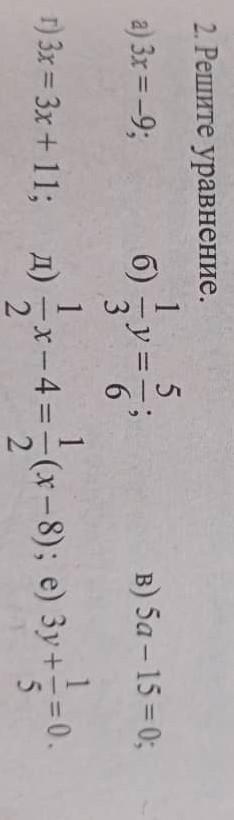 2. Решите уравнение.
а) 3x = –9; б) 1/3 y = 5/6; в) 5a – 15 = 0;
г) 3x = 3x + 11; д) 1/2 x – 4 = 1/2 (x – 8); е) 3y + 1/5 = 0.